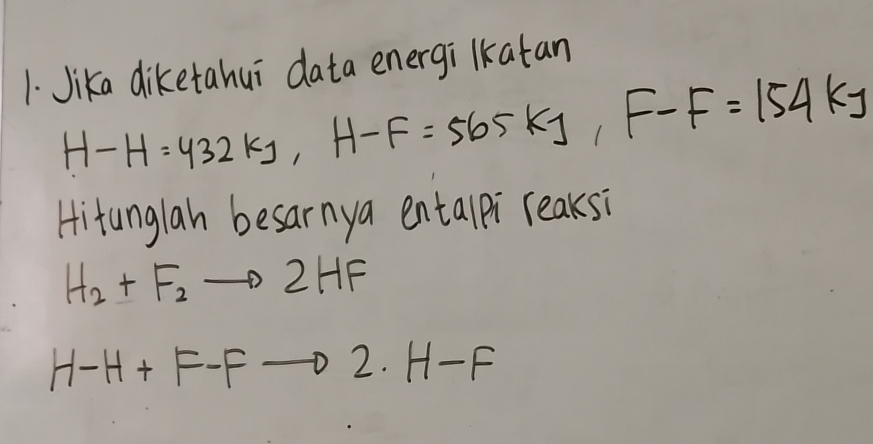 1. Jika diketahui data energi Ikatan
H-H = 432 KJ, H-F = 565 KJ, F-F = 154 KJ
Hitunglah besarnya entalpi reaksi
H₂ + F₂ → 2HF
H-H + F-F → 2. H-F